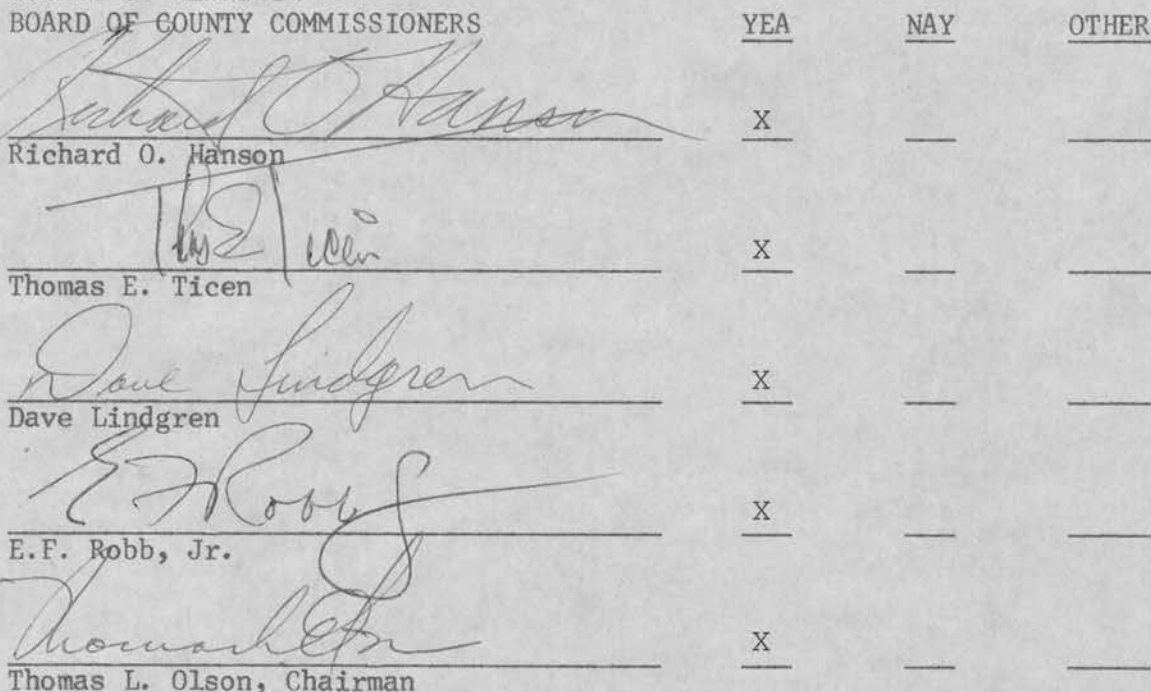 BOARD OF COUNTY COMMISSIONERS YEA NAY OTHER
Richard O Hanson X
Richard O. Hanson
Thos E Ticen X
Thomas E. Ticen
Dave Lindgren X
Dave Lindgren
E F Robb Jr X
E.F. Robb, Jr.
Thomas L Olson X
Thomas L. Olson, Chairman